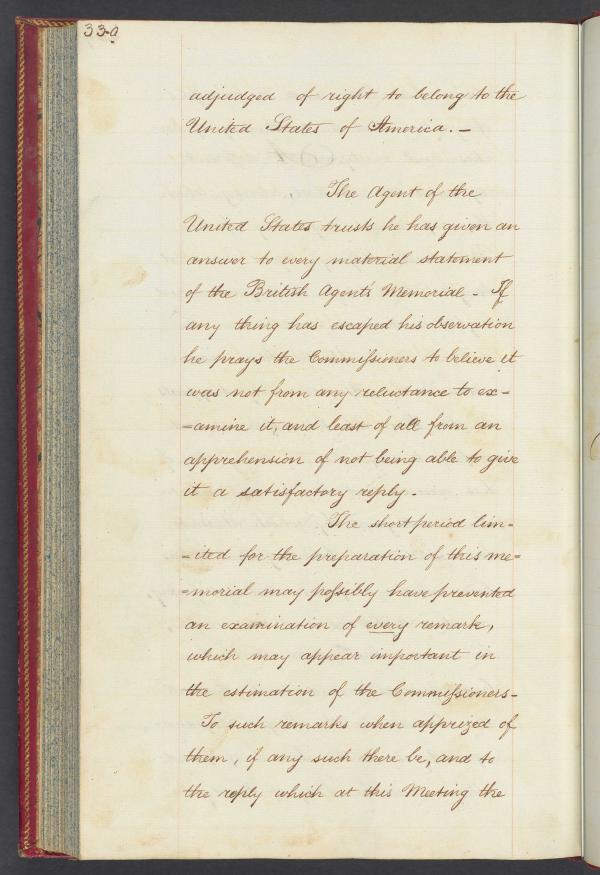 330
adjudged of right to belong to the
United States of America. —
The Agent of the
United States trusts he has given an
answer to every material statement
of the British Agent's Memorial - If
any thing has escaped his observation
he prays the Commissioners to believe it
was not from any reluctance to ex=
=amine it, and least of all from an
apprehension of not being able to give
it a satisfactory reply -
The short period lim=
=ited for the preparation of this me=
=morial may possibly have prevented
an examination of every remark,
which may appear important in
the estimation of the Commissioners -
To such remarks when apprized of
them, if any such there be, and to
the reply which at this Meeting the